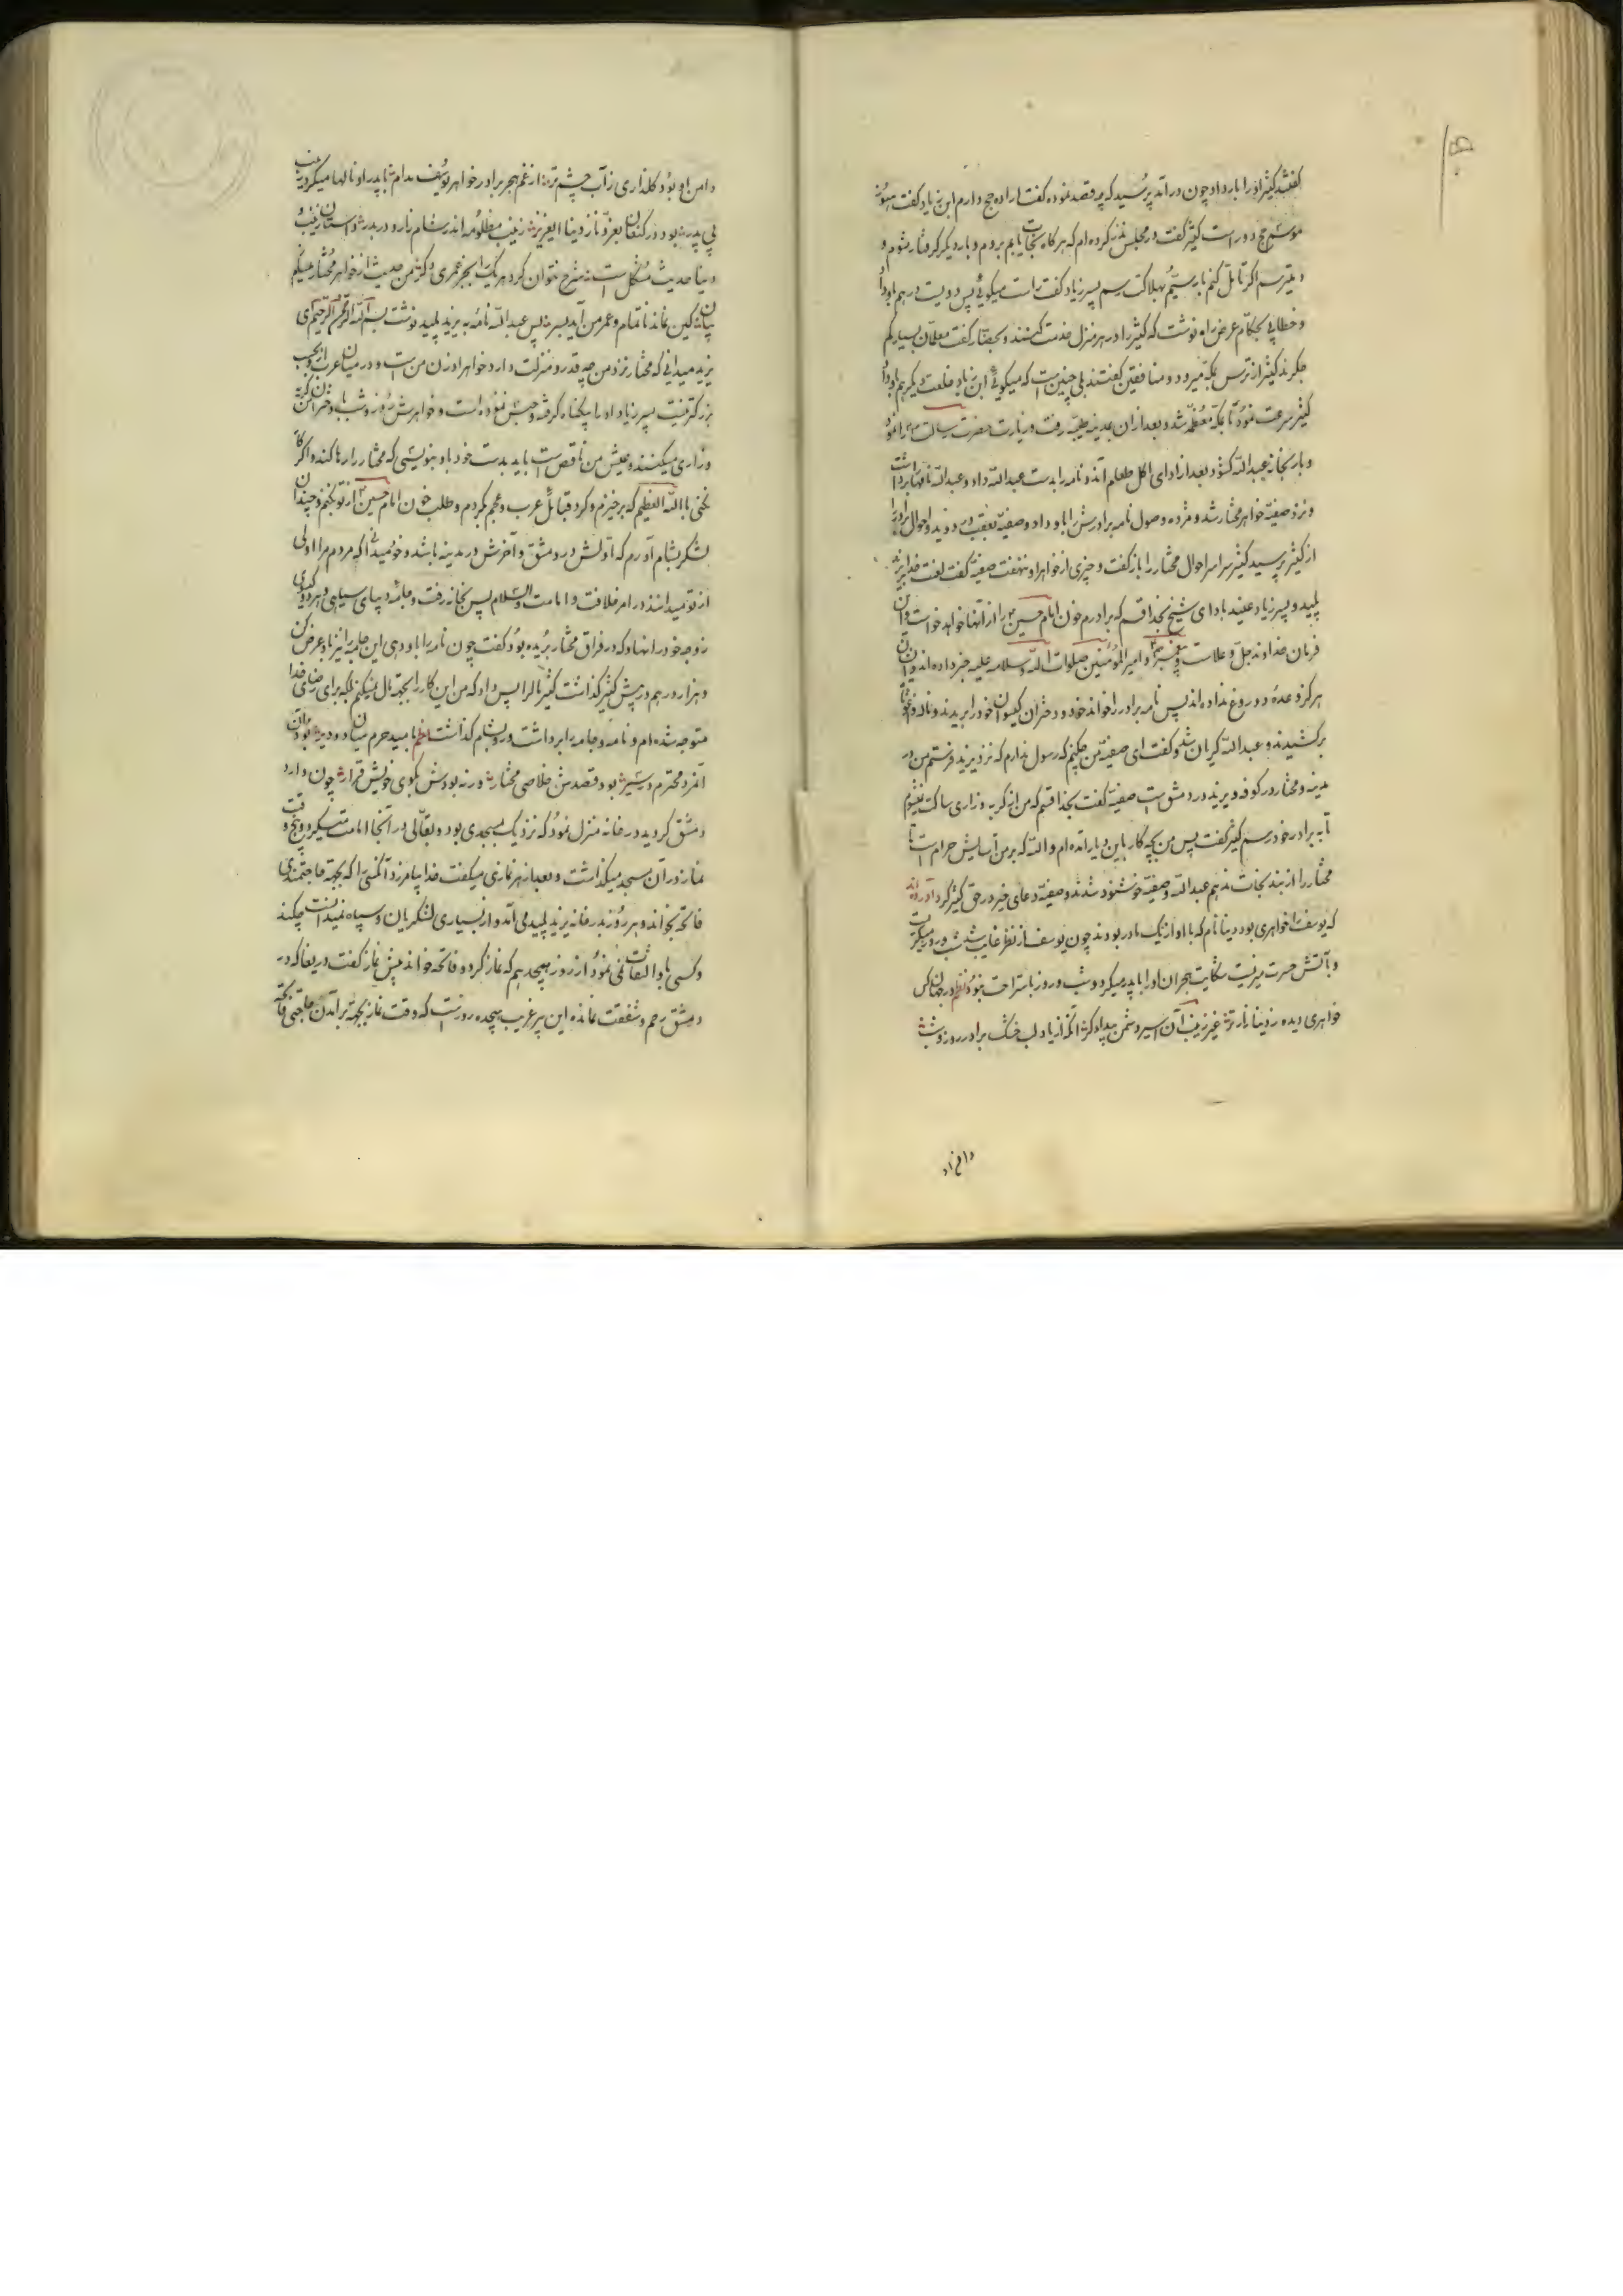 گفتند کثیر او را بار داد چون درآمد پرسید که چه قصد نموده گفت اراده حج دارم ابن زیاد گفت هنوز
موسم حج دور است کثیر گفت در مجلس نذر کرده‌ام که هرگاه نجات یابم بروم و بار دیگر گرفتار نشوم و
میترسم اگر تأمل کنم بار سیم بهلاکت رسم پسر زیاد گفت راست میگوئی پس دویست درهم باو داد
و خطابی بحکام عرض راه نوشت که کثیر را در هر منزل خدمت کنند و بحضار گفت معلمان بسیار کم
جگرند کثیر از ترس بمکه میرود و منافقین گفتند بلی چنین است که میگوئی ابن زیاد خلعت دیگر هم باو داد
کثیر سرعت نمود تا بمکه معظمه شد و بعد از آن بمدینه طیبه رفت و زیارت حضرت رسالت را نمود
و بار بخانه عبدالله گشود بعد از ادای اکل طعام آمد و نامه را بدست عبدالله داد و عبدالله نامها برداشت
و نزد صفیه خواهر مختار شد و مژده وصول نامه برادرش را باو داد و صفیه بعقب در دوید و احوال برادر را
از کثیر پرسید کثیر سراسر احوال مختار را باز گفت و چیزی از خواهر او ننهفت صفیه گفت لعنت خدا بر یزید
پلید و پسر زیاد عنید باد ای شیخ بخدا قسم که برادرم خون امام حسین را از آنها خواهد خواست و آن
فرمان خداوند جل و علاست و پیغمبر و امیرالمؤمنین صلوات الله و سلامه علیه خبر داده‌اند و ایشان
هرگز وعده دروغ نداده‌اند پس نامه برادر را خواند خود و دختران گیسوان خود را بریدند و ناله و غوغا
برکشیدند و عبدالله گریان شد و گفت ای صفیه من چکنم که رسول ندارم که نزد یزید فرستم من در
مدینه و مختار در کوفه و یزید در دمشق است صفیه گفت بخدا قسم که من از گریه و زاری ساکت نشوم
تا به برادر خود رسم کثیر گفت پس من بچه کار باین دیار آمده‌ام والله که بر من آسایش حرام است تا
مختار را از بند نجات ندهم عبدالله و صفیه خوشنود شدند و صفیه دعای خیر در حق کثیر کرد آورده‌اند
که یوسف را خواهری بود دینا نام که با او از یک مادر بودند چون یوسف از نظر غایب شد شب و روز میگریست
و بآتش حسرت میزیست شکایت هجران او را با پدر میکرد و شب و روز باستراحت ننمود نظم در جهان کس
خواهری دیده ز دینا زارتر غیر زینب آن اسیر دشمن بیدادگر آنکه از یاد لب خشک برادر روز و شب
دامن او
دامن او بود گلناری ز آب چشم تر از غم هجر برادر خواهر یوسف مدام با پدر او ناله‌ها میکرد زینب
بی پدر بود در کنعان بعز و ناز دینا ای عزیز زینب مظلومه اندر شام زار و دربدر داستان زینب و
دینا حدیث مشکل است شرح نتوان کرد هر یک را بجز عمری دگر من حدیث از خواهر مختار میگویم
بیان لیکن نماند ناتمام و عمر من آید بسر پس عبدالله نامه به یزید پلید نوشت بسم الله الرحمن الرحیم ای
یزید میدانی که مختار نزد من چه قدر و منزلت دارد خواهر او زن من است و در میان عرب از من کسی
بزرگتر نیست پسر زیاد او را بیگناه گرفته و حبس نموده است و خواهرش روز و شب با دختران من گریه
و زاری میکنند و عیش من ناقص است باید بدست خود باو بنویسی که مختار را رها کند و اگر
نکنی باالله العظیم که برخیزم و گرد قبائل عرب و عجم بگردم و طلب خون امام حسین از تو بکنم و چندان
لشکر بشام آورم که اولش در دمشق و آخرش در مدینه باشد و خود میدانی که مردم مرا اولی
از تو میدانند در امر خلافت و امامت والسلام پس بخانه رفت و جامه دیبای سیاهی و هر دو گیسوی
زوجه خود را نهاد که در فراق مختار بریده بود گفت چون نامه را باو دهی این جامه را نیز باو عرض کن
و هزار درهم در پیش کثیر گذاشت کثیر مال را پس داد که من این کار را بجهة مال نمیکنم بلکه برای رضای خدا
متوجه شده‌ام و نامه و جامه را برداشت و رو بشام گذاشت نظم نا امید حرم
آنمرد محترم در سیر بود قصدش خلاصی مختار ورنه بودش بکوی خویش قرار چون وارد
دمشق گردید در خانه منزل نمود که نزدیک مسجدی بود و بقالی در آنجا امامت میکرد و پنج وقت
نماز در آن مسجد میگذاشت و بعد از هر نمازی میگفت خدا بیامرزد آنکسی را که بجهة حاجتمندی
فاتحه بخواند و هر روز بدر خانه یزید پلید می‌آمد و از بسیاری لشکریان و سپاه نمیدانست چکند
و کسی باو التفات نمی‌نمود از روز هیجدهم که نماز کرد و فاتحه خواند پیش نماز گفت دریغا که در
دمشق رحم و شفقت نمانده این پیر غریب هیجده روز است که وقت نماز بجهة برآمدن حاجتی فاتحه